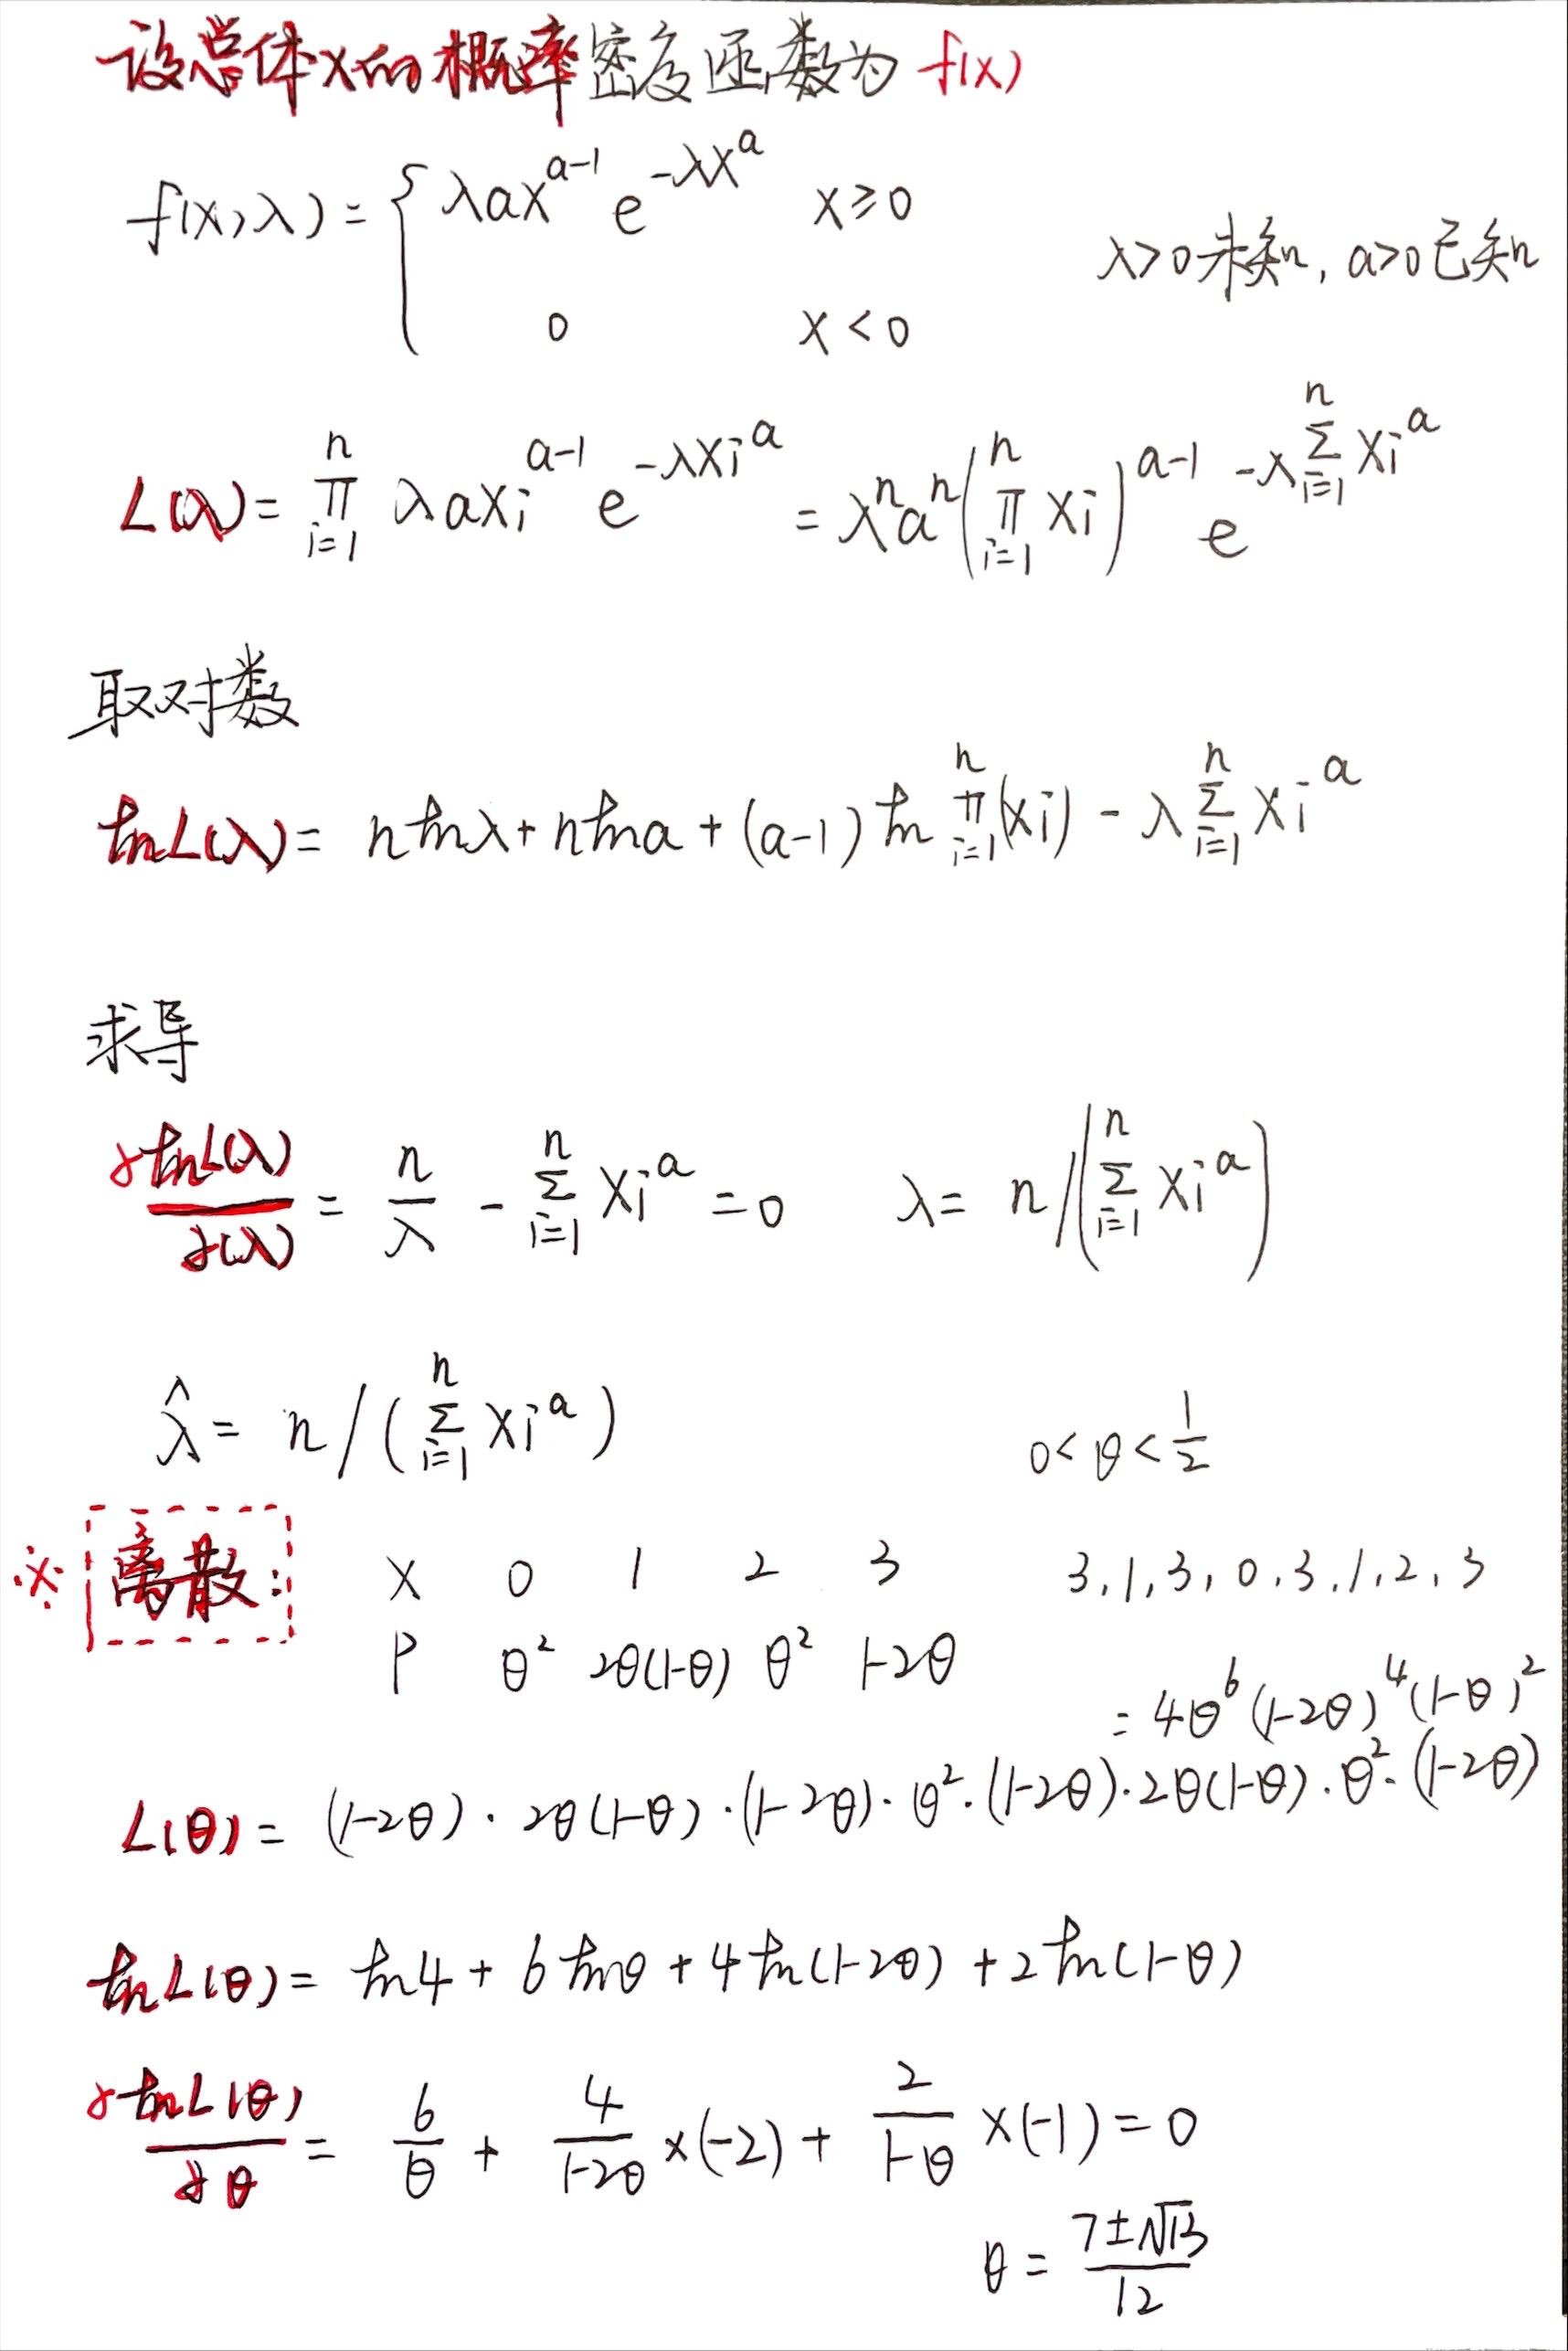 设总体X的概率密度函数为 f(x)
f(x,λ) = { λax^{a-1} e^{-λx^a} x≥0
0 x<0
λ>0未知, a>0已知
L(λ) = ∏_{i=1}^{n} λaxi^{a-1} e^{-λxi^a} = λ^n a^n (∏_{i=1}^{n} xi)^{a-1} e^{-λ∑_{i=1}^{n} xi^a}
取对数
lnL(λ) = nlnλ + nlna + (a-1) ln ∏_{i=1}^{n}(xi) - λ∑_{i=1}^{n} xi^a
求导
dlnL(λ)/d(λ) = n/λ - ∑_{i=1}^{n} xi^a = 0 λ = n/(∑_{i=1}^{n} xi^a)
λ̂ = n/(∑_{i=1}^{n} xi^a)
0<θ<1/2
※ 离散: X 0 1 2 3 3,1,3,0,3,1,2,3
P θ² 2θ(1-θ) θ² 1-2θ
= 4θ^6 (1-2θ)^4 (1-θ)^2
L(θ) = (1-2θ)·2θ(1-θ)·(1-2θ)·θ²·(1-2θ)·2θ(1-θ)·θ²·(1-2θ)
lnL(θ) = ln4 + 6lnθ + 4ln(1-2θ) + 2ln(1-θ)
dlnL(θ)/dθ = 6/θ + 4/(1-2θ) ×(-2) + 2/(1-θ) ×(-1) = 0
θ = (7±√13)/12